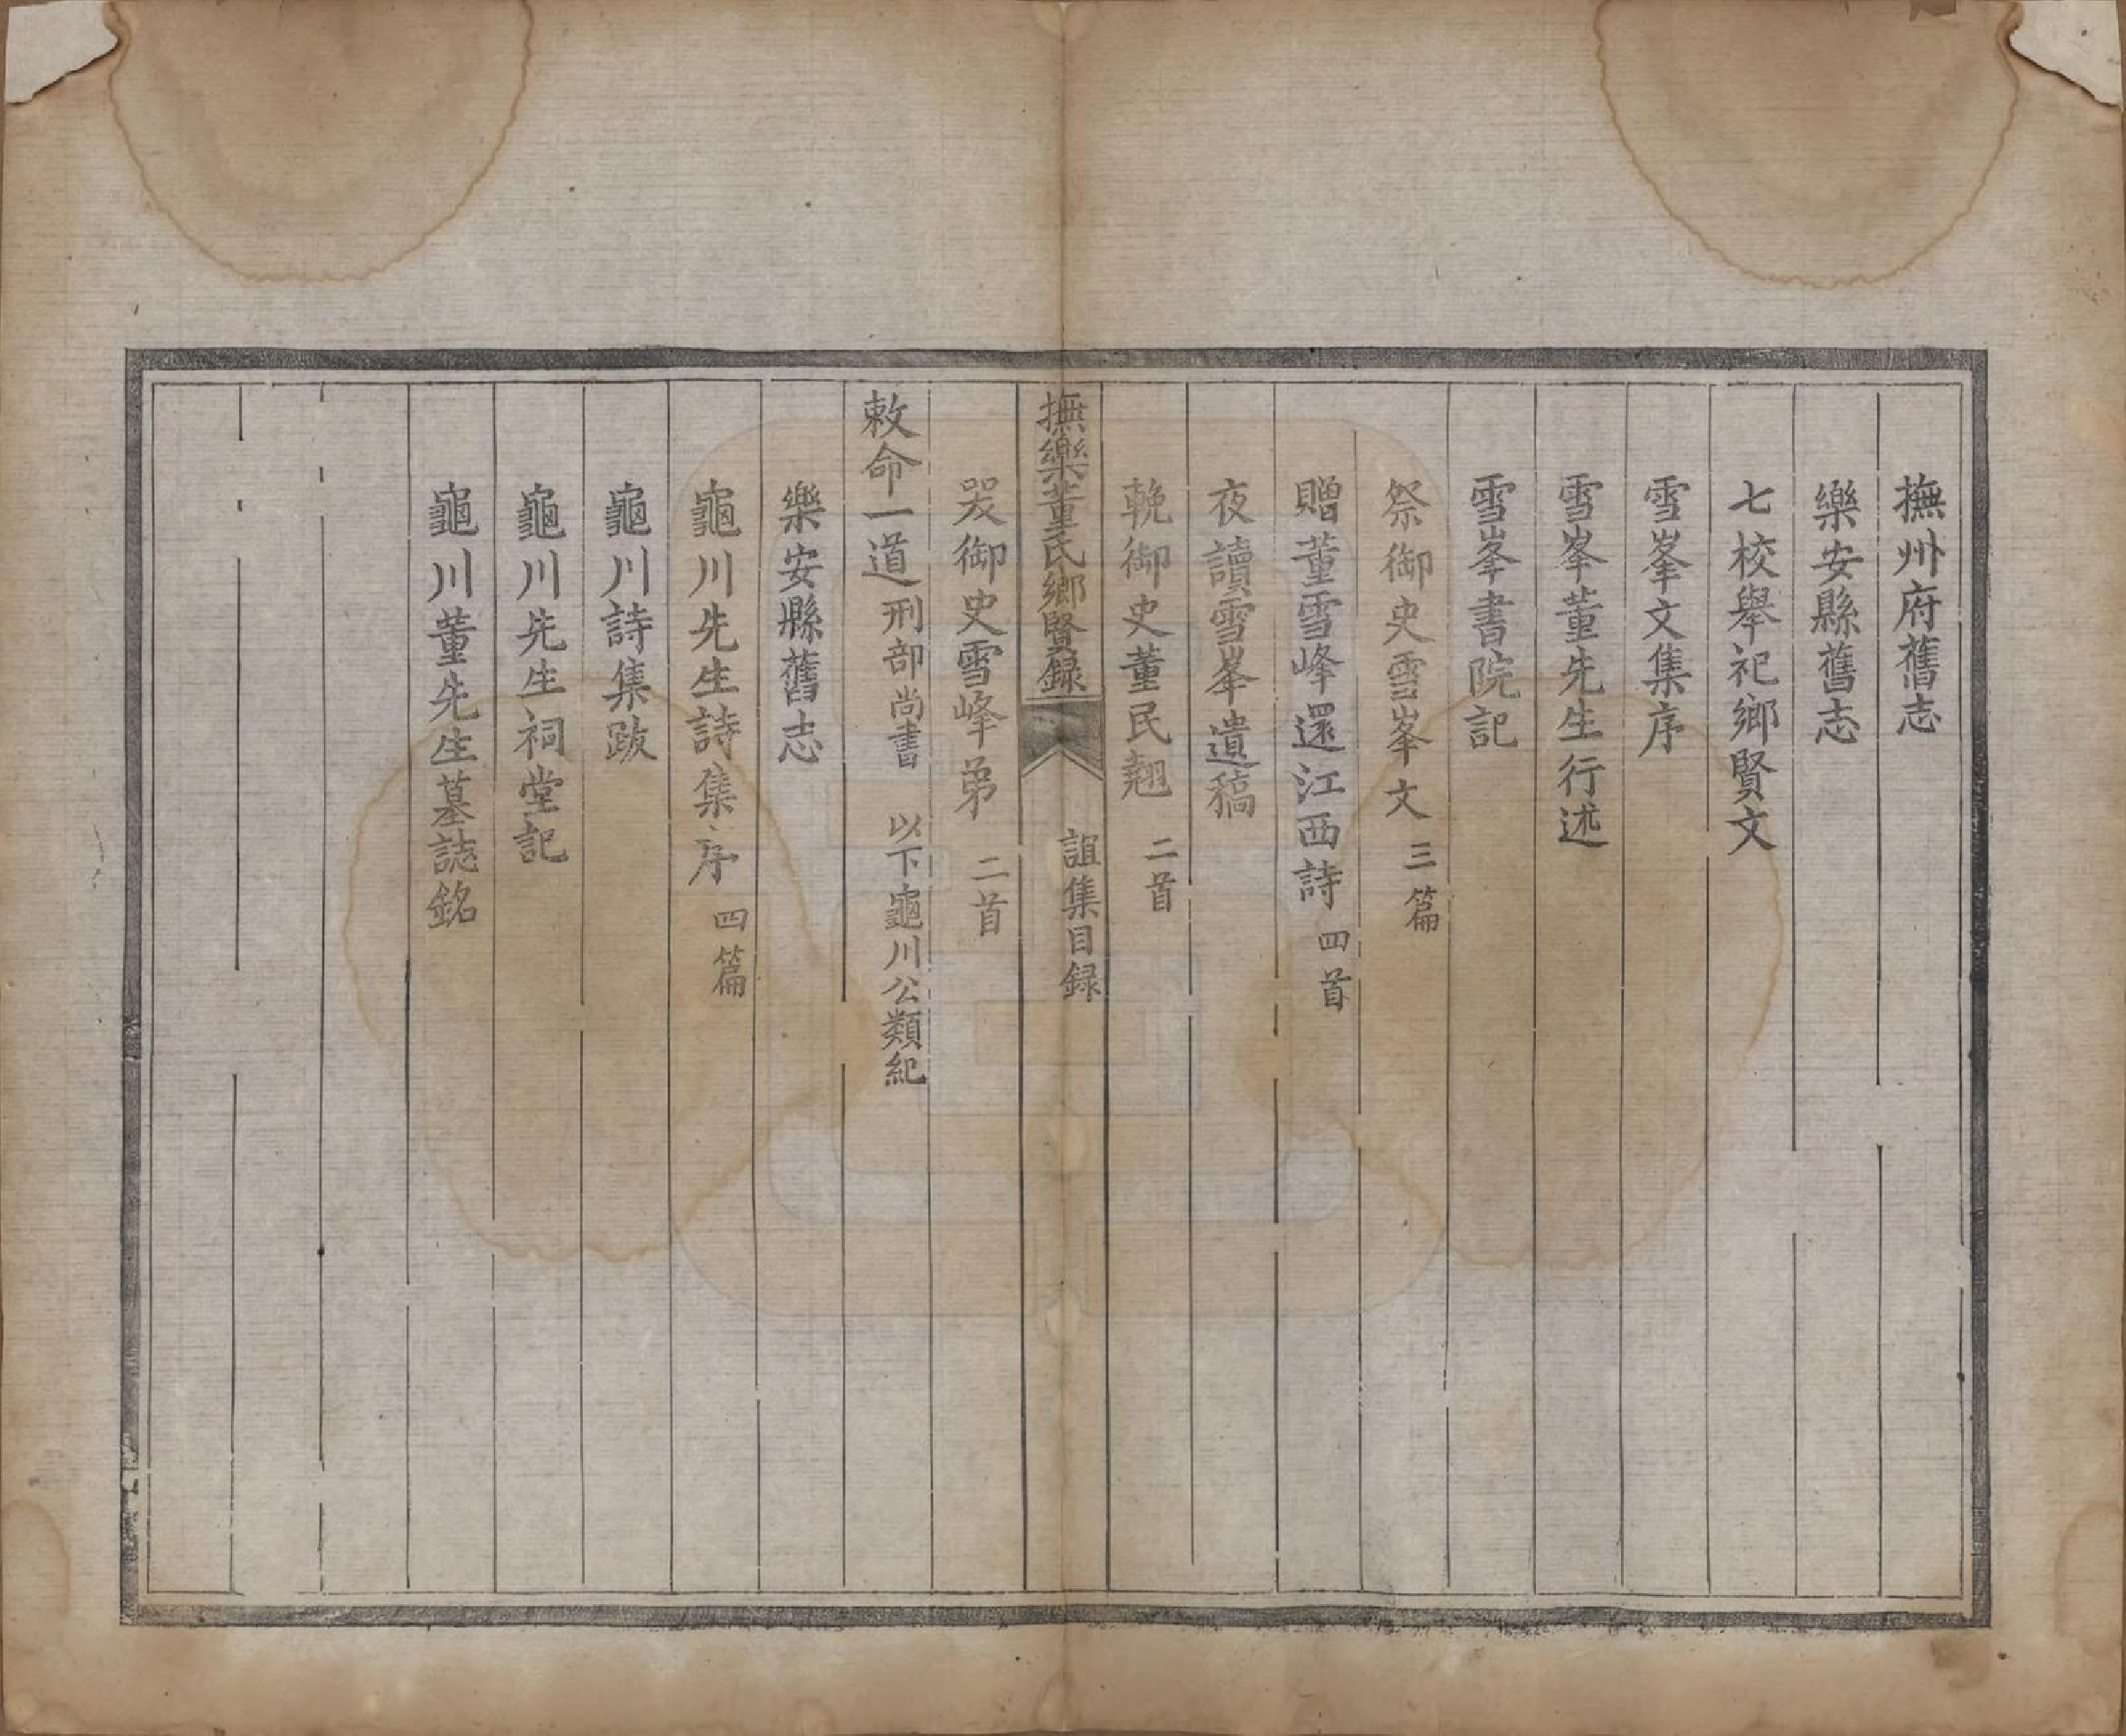 撫州府舊志
樂安縣舊志
七校舉祀鄉賢文
雪峯文集序
雪峯董先生行述
雪峯書院記
祭御史雪峯文 三篇
贈董雪峰還江西詩 四首
夜讀雪峯遺稿
輓御史董民翹 二首
撫樂董氏鄉賢録 誼集目録
哭御史雪峰弟 二首
敕命一道 刑部尚書 以下龜川公類紀
樂安縣舊志
龜川先生詩集序 四篇
龜川詩集跋
龜川先生祠堂記
龜川董先生墓誌銘